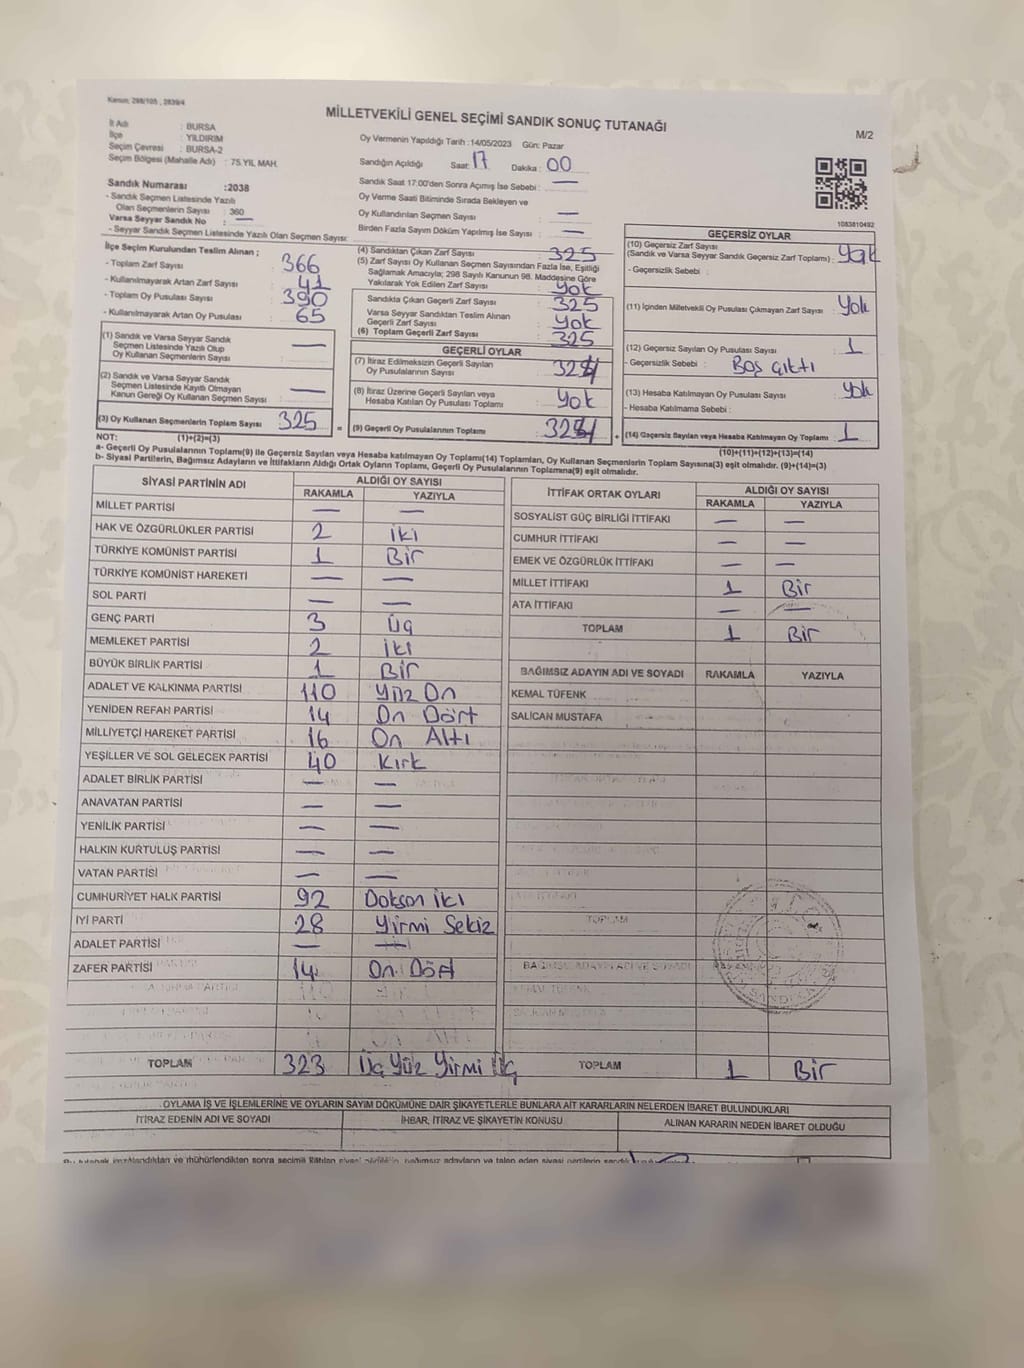 Kanun; 298/105 , 2839/4
MİLLETVEKİLİ GENEL SEÇİMİ SANDIK SONUÇ TUTANAĞI
M/2
İl Adı : BURSA
İlçe : YILDIRIM
Seçim Çevresi : BURSA-2
Seçim Bölgesi (Mahalle Adı) : 75.YIL MAH.
Sandık Numarası :2038
- Sandık Seçmen Listesinde Yazılı
Olan Seçmenlerin Sayısı : 360
Varsa Seyyar Sandık No : —
- Seyyar Sandık Seçmen Listesinde Yazılı Olan Seçmen Sayısı:
Oy Vermenin Yapıldığı Tarih :14/05/2023 Gün: Pazar
Sandığın Açıldığı Saat: 17 Dakika : 00
Sandık Saat 17:00'den Sonra Açımış İse Sebebi : —
Oy Verme Saati Bitiminde Sırada Bekleyen ve
Oy Kullandırılan Seçmen Sayısı : —
Birden Fazla Sayım Döküm Yapılmış İse Sayısı : —
1083810492
İlçe Seçim Kurulundan Teslim Alınan ;
- Toplam Zarf Sayısı : 366
- Kullanılmayarak Artan Zarf Sayısı : 41
- Toplam Oy Pusulası Sayısı : 390
- Kullanılmayarak Artan Oy Pusulası : 65
(1) Sandık ve Varsa Seyyar Sandık
Seçmen Listesinde Yazılı Olup
Oy Kullanan Seçmenlerin Sayısı : —
(2) Sandık ve Varsa Seyyar Sandık
Seçmen Listesinde Kayıtlı Olmayan
Kanun Gereği Oy Kullanan Seçmen Sayısı : —
(3) Oy Kullanan Seçmenlerin Toplam Sayısı : 325
(4) Sandıktan Çıkan Zarf Sayısı : 325
(5) Zarf Sayısı Oy Kullanan Seçmen Sayısından Fazla İse, Eşitliği
Sağlamak Amacıyla; 298 Sayılı Kanunun 98. Maddesine Göre
Yakılarak Yok Edilen Zarf Sayısı : Yok
Sandıkla Çıkan Geçerli Zarf Sayısı : 325
Varsa Seyyar Sandıktan Teslim Alınan
Geçerli Zarf Sayısı : Yok
(6) Toplam Geçerli Zarf Sayısı : 325
GEÇERLİ OYLAR
(7) İtiraz Edilmeksizin Geçerli Sayılan
Oy Pusulalarının Sayısı : 324
(8) İtiraz Üzerine Geçerli Sayılan veya
Hesaba Katılan Oy Pusulası Toplamı : Yok
= (9) Geçerli Oy Pusulalarının Toplamı : 324
GEÇERSİZ OYLAR
(10) Geçersiz Zarf Sayısı
(Sandık ve Varsa Seyyar Sandık Geçersiz Zarf Toplamı) : Yok
- Geçersizlik Sebebi :
(11) İçinden Milletvekili Oy Pusulası Çıkmayan Zarf Sayısı : Yok
(12) Geçersiz Sayılan Oy Pusulası Sayısı : 1
- Geçersizlik Sebebi : Boş çıktı
(13) Hesaba Katılmayan Oy Pusulası Sayısı : Yok
- Hesaba Katılmama Sebebi :
+ (14) Geçersiz Sayılan veya Hesaba Katılmayan Oy Toplamı : 1
NOT: (1)+(2)=(3) (10)+(11)+(12)+(13)=(14)
a- Geçerli Oy Pusulalarının Toplamı(9) ile Geçersiz Sayılan veya Hesaba Katılmayan Oy Toplamı(14) Toplamları, Oy Kullanan Seçmenlerin Toplam Sayısına(3) eşit olmalıdır. (9)+(14)=(3)
b- Siyasi Partilerin, Bağımsız Adayların ve İttifakların Aldığı Ortak Oyların Toplamı, Geçerli Oy Pusulalarının Toplamına(9) eşit olmalıdır.
SİYASİ PARTİNİN ADI ALDIĞI OY SAYISI
RAKAMLA YAZIYLA
MİLLET PARTİSİ — —
HAK VE ÖZGÜRLÜKLER PARTİSİ 2 İki
TÜRKİYE KOMÜNİST PARTİSİ 1 Bir
TÜRKİYE KOMÜNİST HAREKETİ — —
SOL PARTİ — —
GENÇ PARTİ 3 Üç
MEMLEKET PARTİSİ 2 İki
BÜYÜK BİRLİK PARTİSİ 1 Bir
ADALET VE KALKINMA PARTİSİ 110 Yüz On
YENİDEN REFAH PARTİSİ 14 On Dört
MİLLİYETÇİ HAREKET PARTİSİ 16 On Altı
YEŞİLLER VE SOL GELECEK PARTİSİ 40 Kırk
ADALET BİRLİK PARTİSİ — —
ANAVATAN PARTİSİ — —
YENİLİK PARTİSİ — —
HALKIN KURTULUŞ PARTİSİ — —
VATAN PARTİSİ — —
CUMHURİYET HALK PARTİSİ 92 Doksan iki
İYİ PARTİ 28 Yirmi Sekiz
ADALET PARTİSİ — —
ZAFER PARTİSİ 14 On Dört
TOPLAM 323 Üç Yüz Yirmi Üç
İTTİFAK ORTAK OYLARI ALDIĞI OY SAYISI
RAKAMLA YAZIYLA
SOSYALİST GÜÇ BİRLİĞİ İTTİFAKI — —
CUMHUR İTTİFAKI — —
EMEK VE ÖZGÜRLÜK İTTİFAKI — —
MİLLET İTTİFAKI 1 Bir
ATA İTTİFAKI — —
TOPLAM 1 Bir
BAĞIMSIZ ADAYIN ADI VE SOYADI RAKAMLA YAZIYLA
KEMAL TÜFENK
SALİCAN MUSTAFA
TOPLAM 1 Bir
OYLAMA İŞ VE İŞLEMLERİNE VE OYLARIN SAYIM DÖKÜMÜNE DAİR ŞİKAYETLERLE BUNLARA AİT KARARLARIN NELERDEN İBARET BULUNDUKLARI
İTİRAZ EDENİN ADI VE SOYADI İHBAR, İTİRAZ VE ŞİKAYETİN KONUSU ALINAN KARARIN NEDEN İBARET OLDUĞU